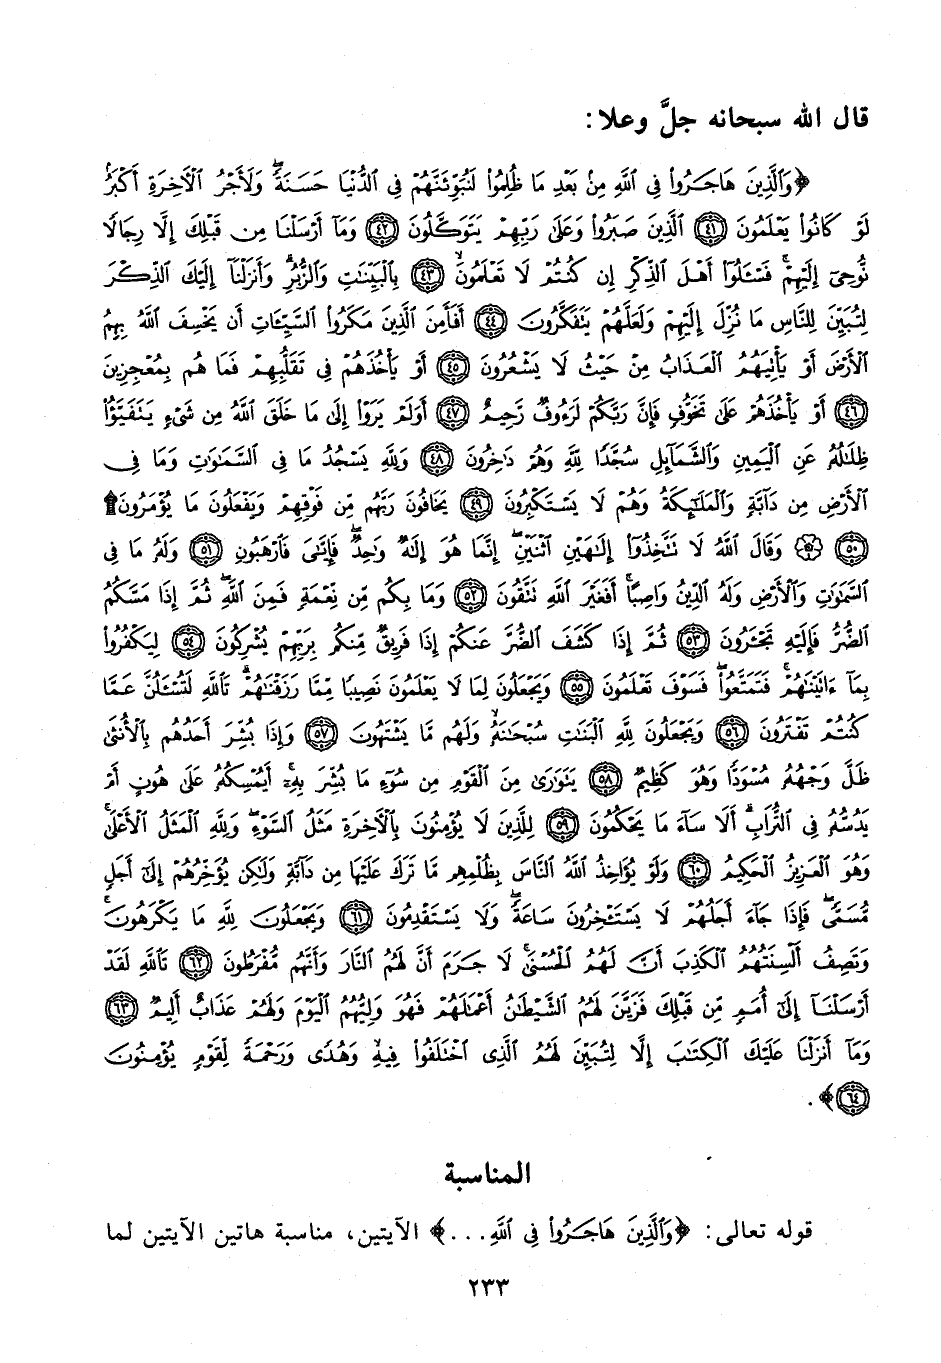 قال الله سبحانه جلَّ وعلا:
﴿وَٱلَّذِينَ هَاجَرُواْ فِي ٱللَّهِ مِنۢ بَعۡدِ مَا ظُلِمُواْ لَنُبَوِّئَنَّهُمۡ فِي ٱلدُّنۡيَا حَسَنَةٗۖ وَلَأَجۡرُ ٱلۡأٓخِرَةِ أَكۡبَرُۚ
لَوۡ كَانُواْ يَعۡلَمُونَ ٤١ ٱلَّذِينَ صَبَرُواْ وَعَلَىٰ رَبِّهِمۡ يَتَوَكَّلُونَ ٤٢ وَمَآ أَرۡسَلۡنَا مِن قَبۡلِكَ إِلَّا رِجَالٗا
نُّوحِيٓ إِلَيۡهِمۡۖ فَسۡـَٔلُوٓاْ أَهۡلَ ٱلذِّكۡرِ إِن كُنتُمۡ لَا تَعۡلَمُونَۙ ٤٣ بِٱلۡبَيِّنَٰتِ وَٱلزُّبُرِۗ وَأَنزَلۡنَآ إِلَيۡكَ ٱلذِّكۡرَ
لِتُبَيِّنَ لِلنَّاسِ مَا نُزِّلَ إِلَيۡهِمۡ وَلَعَلَّهُمۡ يَتَفَكَّرُونَ ٤٤ أَفَأَمِنَ ٱلَّذِينَ مَكَرُواْ ٱلسَّيِّـَٔاتِ أَن يَخۡسِفَ ٱللَّهُ بِهِمُ
ٱلۡأَرۡضَ أَوۡ يَأۡتِيَهُمُ ٱلۡعَذَابُ مِنۡ حَيۡثُ لَا يَشۡعُرُونَ ٤٥ أَوۡ يَأۡخُذَهُمۡ فِي تَقَلُّبِهِمۡ فَمَا هُم بِمُعۡجِزِينَ
٤٦ أَوۡ يَأۡخُذَهُمۡ عَلَىٰ تَخَوُّفٖ فَإِنَّ رَبَّكُمۡ لَرَءُوفٞ رَّحِيمٌ ٤٧ أَوَلَمۡ يَرَوۡاْ إِلَىٰ مَا خَلَقَ ٱللَّهُ مِن شَيۡءٖ يَتَفَيَّؤُاْ
ظِلَٰلُهُۥ عَنِ ٱلۡيَمِينِ وَٱلشَّمَآئِلِ سُجَّدٗا لِّلَّهِ وَهُمۡ دَٰخِرُونَ ٤٨ وَلِلَّهِۤ يَسۡجُدُۤ مَا فِي ٱلسَّمَٰوَٰتِ وَمَا فِي
ٱلۡأَرۡضِ مِن دَآبَّةٖ وَٱلۡمَلَٰٓئِكَةُ وَهُمۡ لَا يَسۡتَكۡبِرُونَ ٤٩ يَخَافُونَ رَبَّهُم مِّن فَوۡقِهِمۡ وَيَفۡعَلُونَ مَا يُؤۡمَرُونَ۩
٥٠ ۞ وَقَالَ ٱللَّهُ لَا تَتَّخِذُوٓاْ إِلَٰهَيۡنِ ٱثۡنَيۡنِۖ إِنَّمَا هُوَ إِلَٰهٞ وَٰحِدٞۖ فَإِيَّٰيَ فَٱرۡهَبُونِ ٥١ وَلَهُۥ مَا فِي
ٱلسَّمَٰوَٰتِ وَٱلۡأَرۡضِ وَلَهُ ٱلدِّينُ وَاصِبًاۚ أَفَغَيۡرَ ٱللَّهِ تَتَّقُونَ ٥٢ وَمَا بِكُم مِّن نِّعۡمَةٖ فَمِنَ ٱللَّهِۖ ثُمَّ إِذَا مَسَّكُمُ
ٱلضُّرُّ فَإِلَيۡهِ تَجۡـَٔرُونَ ٥٣ ثُمَّ إِذَا كَشَفَ ٱلضُّرَّ عَنكُمۡ إِذَا فَرِيقٞ مِّنكُم بِرَبِّهِمۡ يُشۡرِكُونَ ٥٤ لِيَكۡفُرُواْ
بِمَآ ءَاتَيۡنَٰهُمۡۚ فَتَمَتَّعُواْۖ فَسَوۡفَ تَعۡلَمُونَ ٥٥ وَيَجۡعَلُونَ لِمَا لَا يَعۡلَمُونَ نَصِيبٗا مِّمَّا رَزَقۡنَٰهُمۡۗ تَٱللَّهِ لَتُسۡـَٔلُنَّ عَمَّا
كُنتُمۡ تَفۡتَرُونَ ٥٦ وَيَجۡعَلُونَ لِلَّهِ ٱلۡبَنَٰتِ سُبۡحَٰنَهُۥۙ وَلَهُم مَّا يَشۡتَهُونَ ٥٧ وَإِذَا بُشِّرَ أَحَدُهُم بِٱلۡأُنثَىٰ
ظَلَّ وَجۡهُهُۥ مُسۡوَدّٗا وَهُوَ كَظِيمٞ ٥٨ يَتَوَٰرَىٰ مِنَ ٱلۡقَوۡمِ مِن سُوٓءِ مَا بُشِّرَ بِهِۦٓۚ أَيُمۡسِكُهُۥ عَلَىٰ هُونٍ أَمۡ
يَدُسُّهُۥ فِي ٱلتُّرَابِۗ أَلَا سَآءَ مَا يَحۡكُمُونَ ٥٩ لِلَّذِينَ لَا يُؤۡمِنُونَ بِٱلۡأٓخِرَةِ مَثَلُ ٱلسَّوۡءِۖ وَلِلَّهِ ٱلۡمَثَلُ ٱلۡأَعۡلَىٰۚ
وَهُوَ ٱلۡعَزِيزُ ٱلۡحَكِيمُ ٦٠ وَلَوۡ يُؤَاخِذُ ٱللَّهُ ٱلنَّاسَ بِظُلۡمِهِم مَّا تَرَكَ عَلَيۡهَا مِن دَآبَّةٖ وَلَٰكِن يُؤَخِّرُهُمۡ إِلَىٰٓ أَجَلٖ
مُّسَمّٗىۖ فَإِذَا جَآءَ أَجَلُهُمۡ لَا يَسۡتَـٔۡخِرُونَ سَاعَةٗۖ وَلَا يَسۡتَقۡدِمُونَ ٦١ وَيَجۡعَلُونَ لِلَّهِ مَا يَكۡرَهُونَۚ
وَتَصِفُ أَلۡسِنَتُهُمُ ٱلۡكَذِبَ أَنَّ لَهُمُ ٱلۡحُسۡنَىٰۚ لَا جَرَمَ أَنَّ لَهُمُ ٱلنَّارَ وَأَنَّهُم مُّفۡرَطُونَ ٦٢ تَٱللَّهِ لَقَدۡ
أَرۡسَلۡنَآ إِلَىٰٓ أُمَمٖ مِّن قَبۡلِكَ فَزَيَّنَ لَهُمُ ٱلشَّيۡطَٰنُ أَعۡمَٰلَهُمۡ فَهُوَ وَلِيُّهُمُ ٱلۡيَوۡمَ وَلَهُمۡ عَذَابٌ أَلِيمٞ ٦٣
وَمَآ أَنزَلۡنَا عَلَيۡكَ ٱلۡكِتَٰبَ إِلَّا لِتُبَيِّنَ لَهُمُ ٱلَّذِي ٱخۡتَلَفُواْ فِيهِۙ وَهُدٗى وَرَحۡمَةٗ لِّقَوۡمٖ يُؤۡمِنُونَ
٦٤﴾.
المناسبة
قوله تعالى: ﴿وَٱلَّذِينَ هَاجَرُواْ فِي ٱللَّهِ...﴾ الآيتين، مناسبة هاتين الآيتين لما
٢٣٣